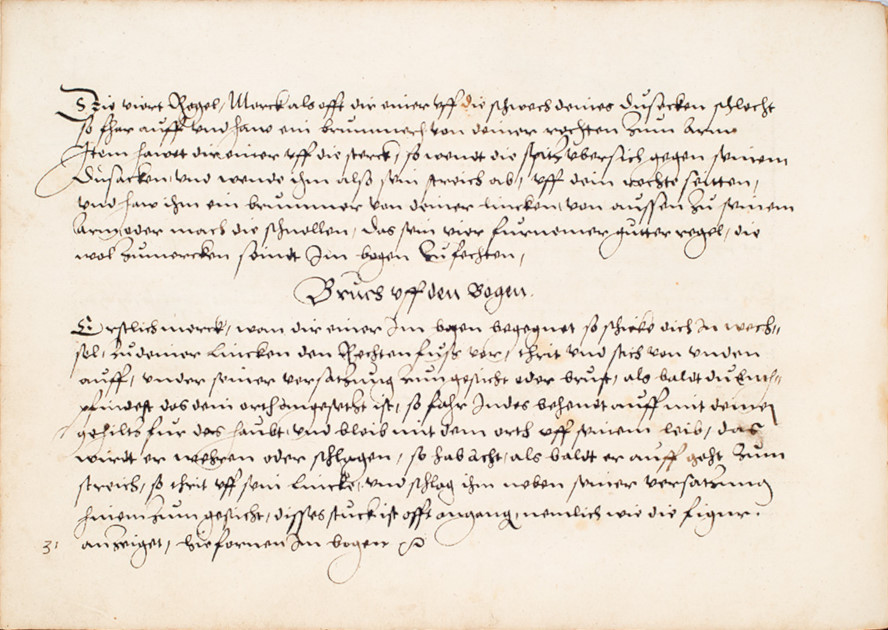 Die viert Regel, Merck als offt dir einer vff die schwech deines Dusecken schlecht
so fhar auff vnd haw ein brummerh von deiner rechten Zum Arm
Item hawet dir einer vff die sterck, so wendt die spitz vbersich gegen seinem
Dusacken, vnd wende ihm alß sein streich ab, vff dein rechte seitten,
vnd haw ihm ein brummer von deiner lincken, von aussen zu seinem
Arm, oder mach die schnellen, das sein vier furnemer gutter regel, die
wol zumercken seindt Im bogen Zufechten,
Bruch vff den Bogen.
Erstlich merck, wan dir einer Im bogen begegnet so schicke dich In wech,,
sel, zu deiner Lincken den Rechten fuss vor, thrit vnd stich von vnden
auff, vnder seiner versatzung zum gesicht oder brust, als baldt du Em,,
pfindest das dein orth angesetzt ist, so fahr Indes behendt auff mit deinem
gehiltz fur das haubt, vnd bleib mit dem orth vff seinem leib, das
wirdt er wehren oder schlagen, so hab acht, als baldt er auff geht Zum
streich, so thrit vff sein lincke, vnd schlag ihm neben seiner versatzung
hinein zum gesicht, disses stuck ist offt angang, nemlich wie die figur
anzeiget, hie fornen Im bogen
31